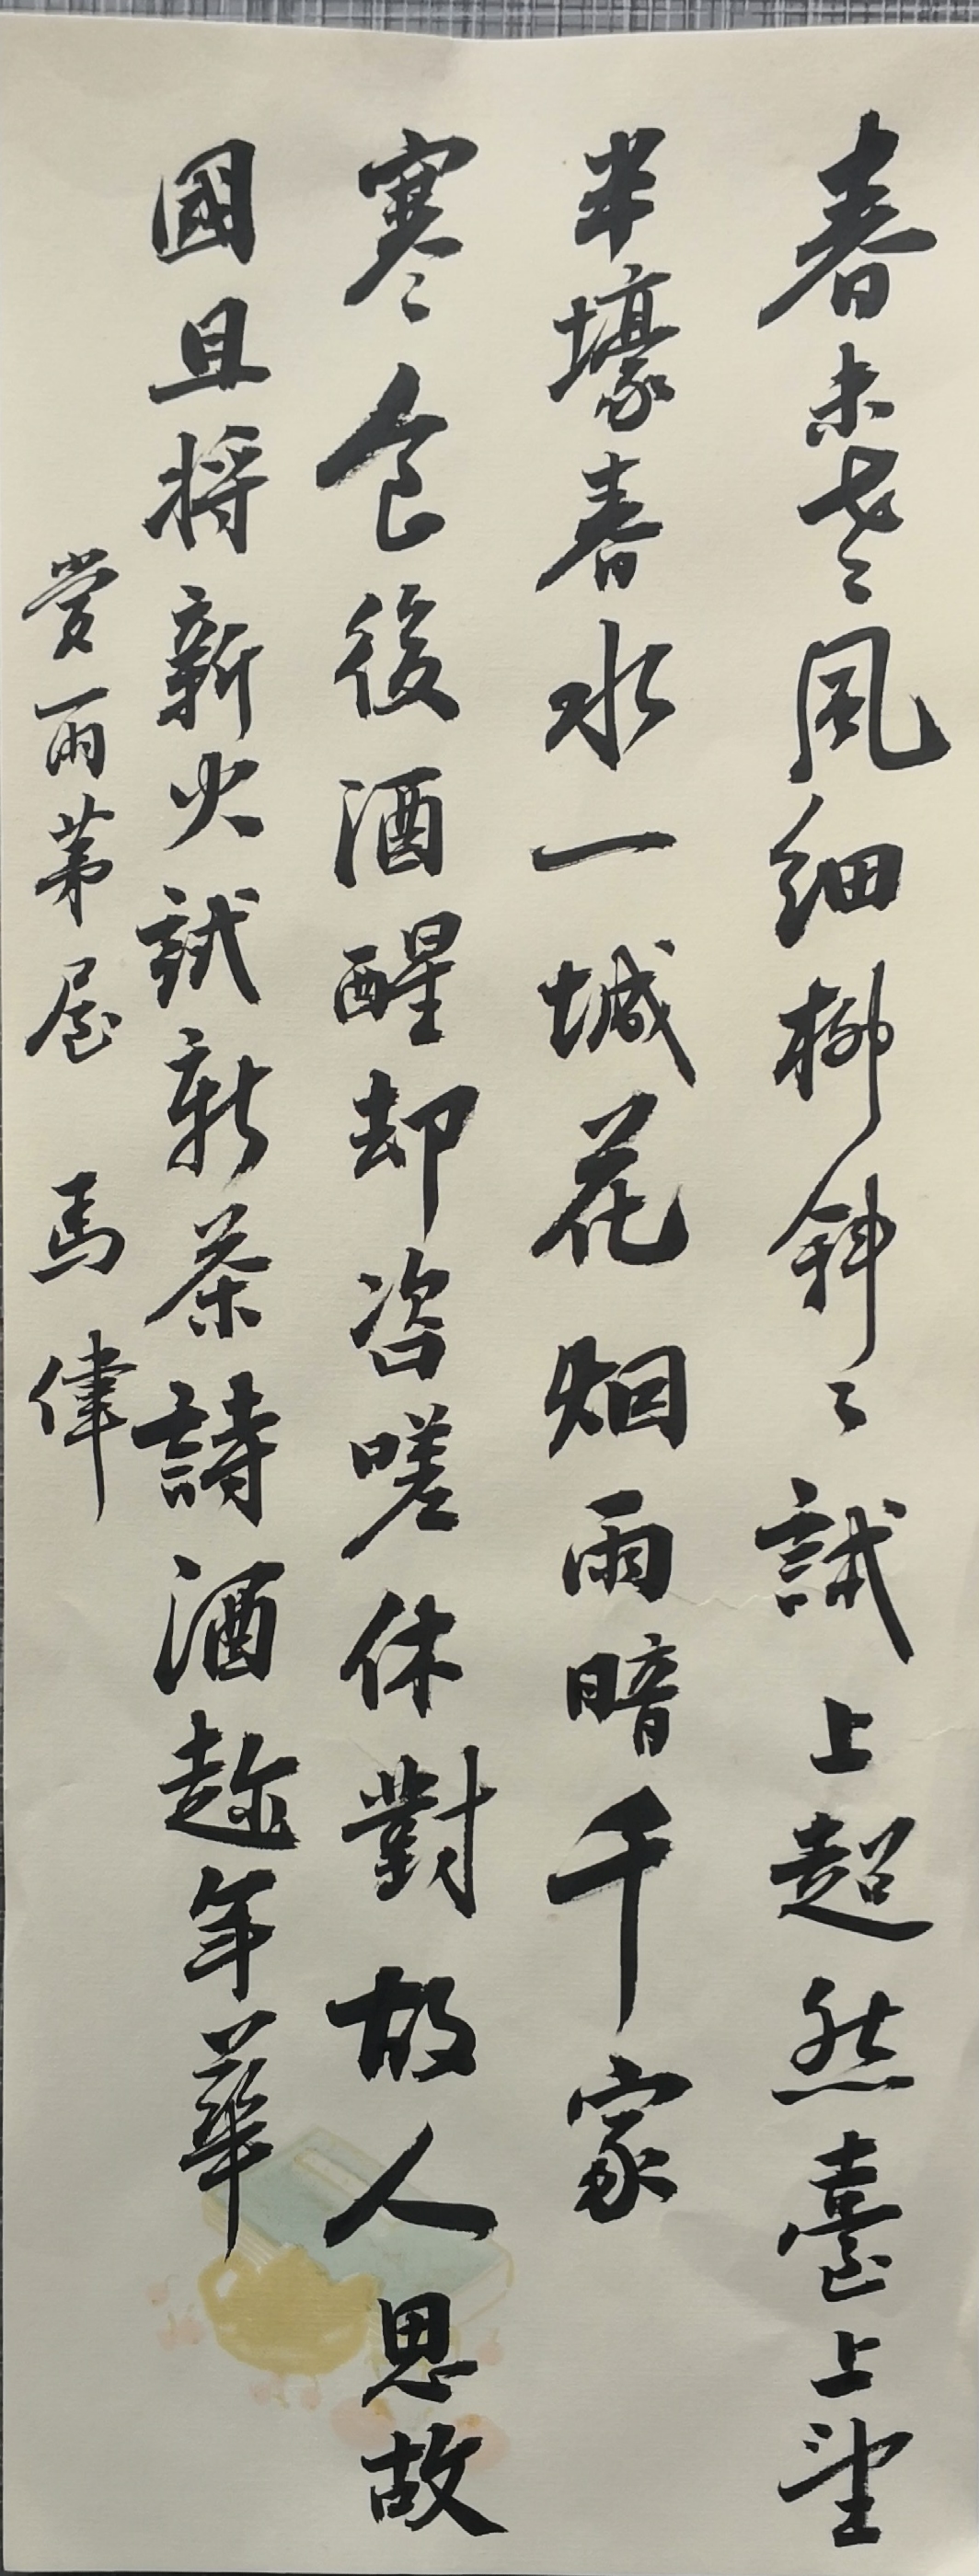 春未老風細柳斜斜試上超然臺上望
半壕春水一城花烟雨暗千家
寒食後酒醒却咨嗟休對故人思故
國且將新火試新茶詩酒趁年華
雨茅屋 馬偉